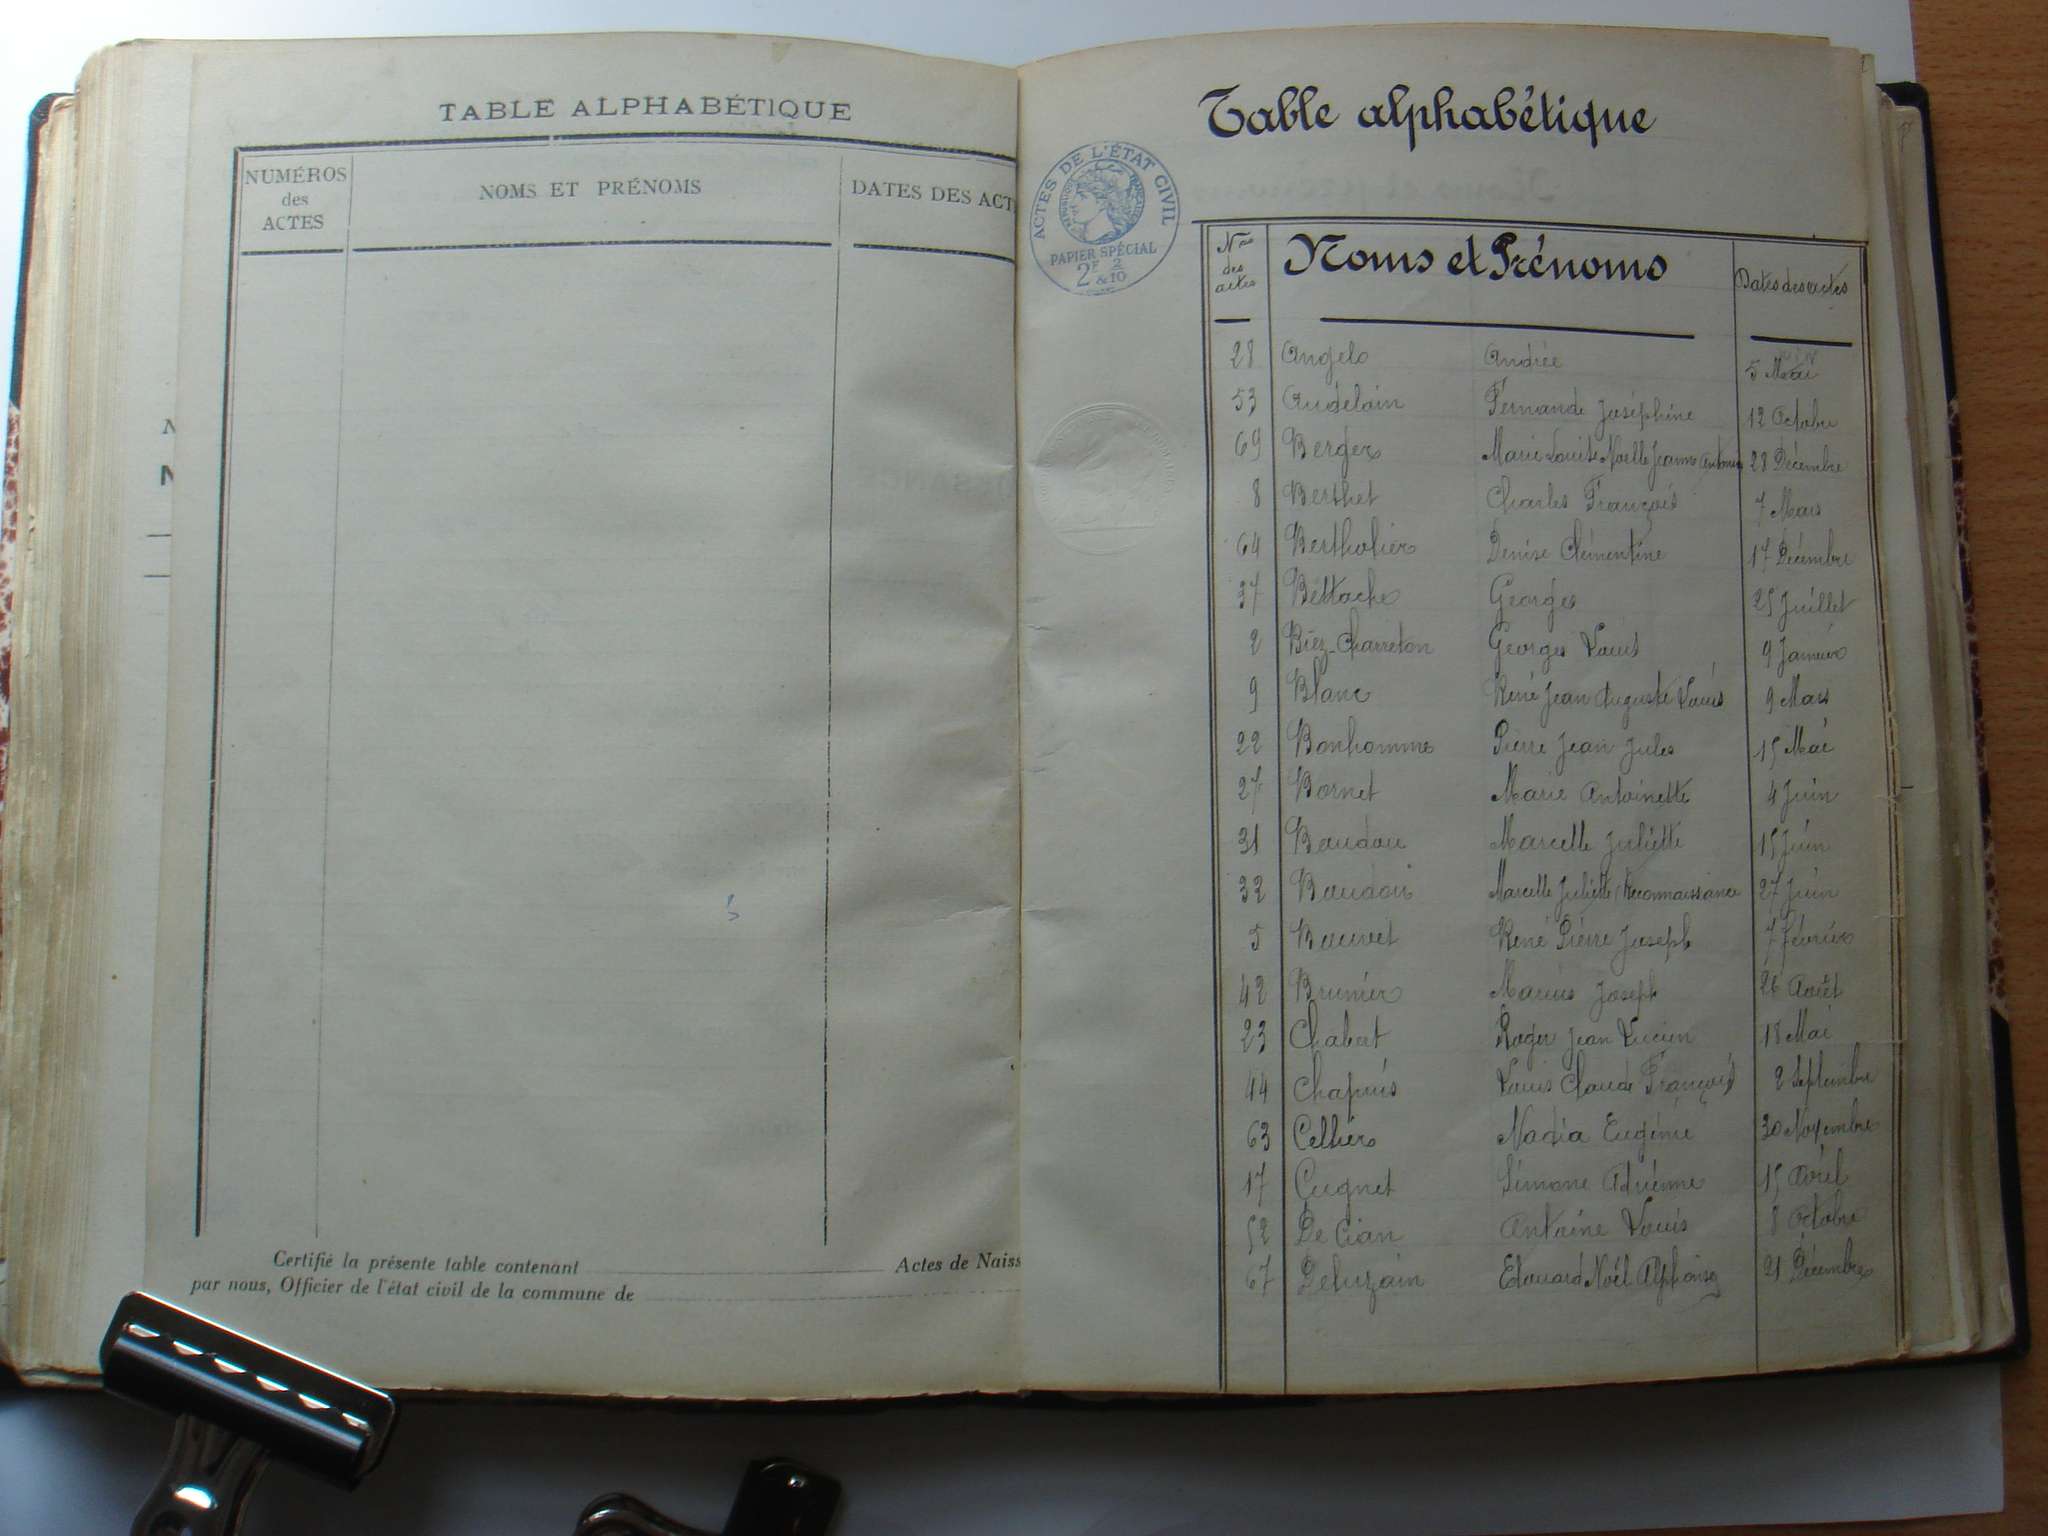 TABLE ALPHABÉTIQUE
NUMÉROS
des
ACTES
NOMS ET PRÉNOMS
DATES DES ACT
Certifié la présente table contenant Actes de Naiss
par nous, Officier de l'état civil de la commune de
Table alphabétique
ACTES DE L'ÉTAT CIVIL
RÉPUBLIQUE FRANÇAISE
PAPIER SPÉCIAL
2F & 2/10
Nos
des
actes
Noms et Prénoms
Dates des actes
28 Angelo Andrée 5 Mai
53 Audelain Fernande Joséphine 12 Octobre
69 Berger Marie Louise Noelle Jeanne 28 Décembre
8 Berthet Charles François 7 Mars
64 Bertholier Denise Clémentine 17 Décembre
37 Béttache Georges 25 Juillet
2 Biez-Charreton Georges Louis 9 Janvier
9 Blanc René Jean Auguste Louis 9 Mars
22 Bonhomme Pierre Jean Jules 15 Mai
27 Bornet Marie Antoinette 4 Juin
31 Marcelle Juliette 15 Juin
32 Marcelle Juliette (Reconnaissance 27 Juin
5 Bouvet René Pierre Joseph 7 Février
42 Brunier Marius Joseph 26 Août
23 Chabert Roger Jean Lucien 18 Mai
44 Chapuis Louis Claude François 2 Septembre
63 Cellier Nadia Eugénie 30 Novembre
17 Cugnet Simone Adrienne 15 Avril
52 De Cian Antoine Louis 8 Octobre
67 Deluzain Edouard Noël Alphonse 21 Décembre